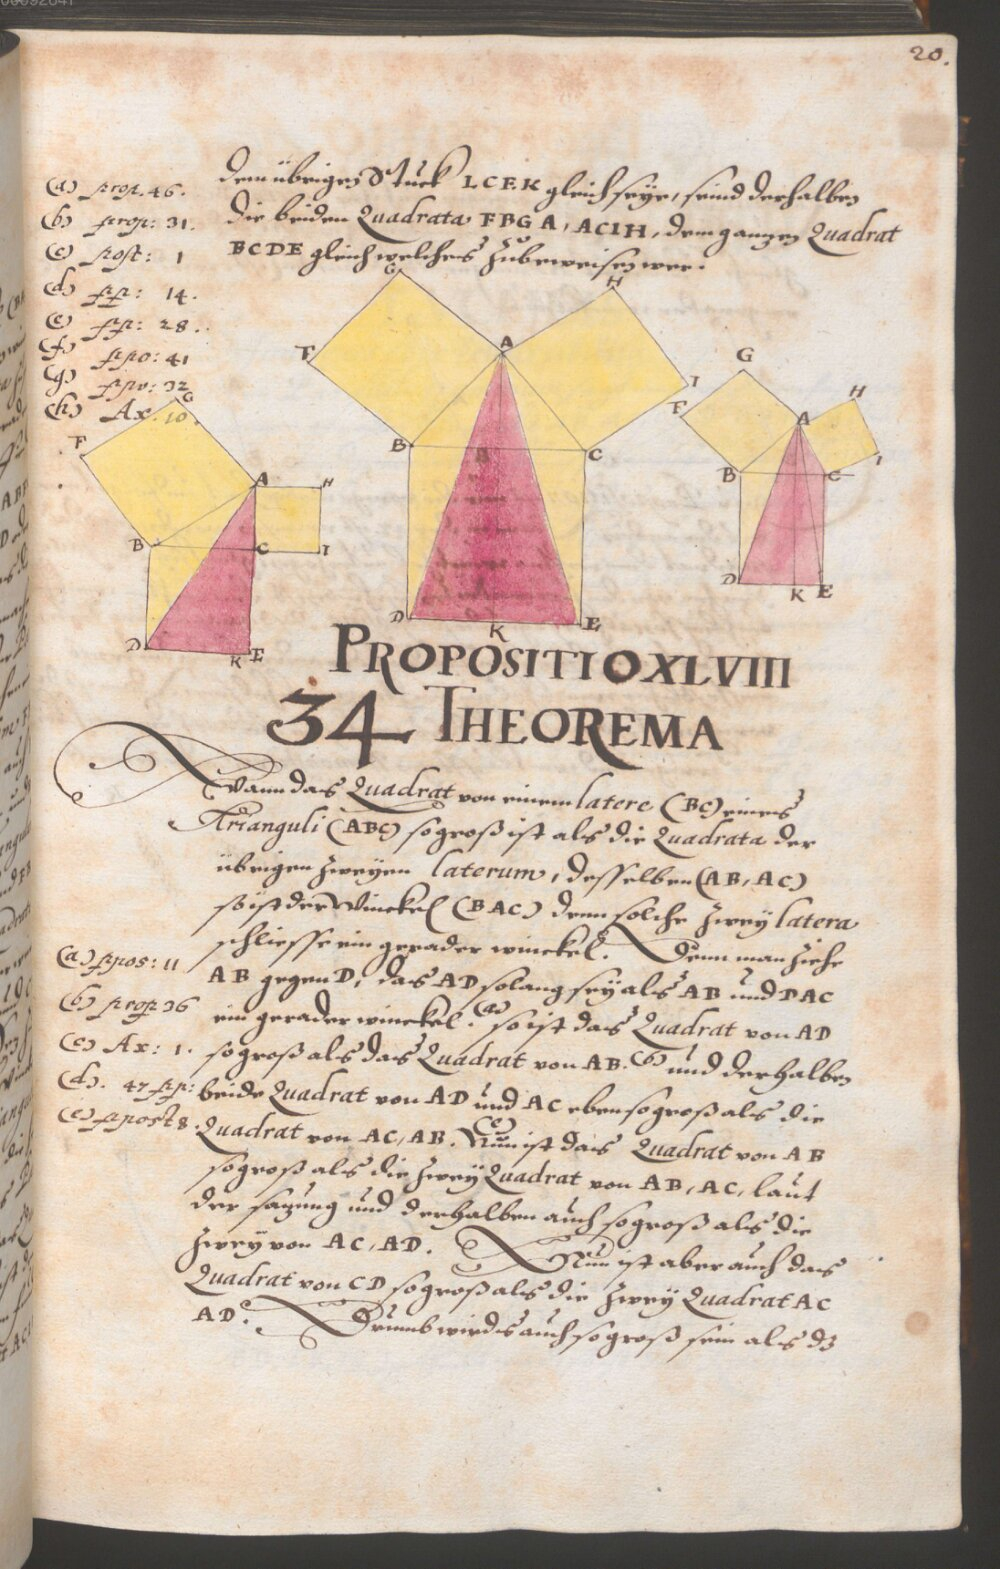 20.
dem übrigen Stuck LCEK gleich seye, seind derhalben
die beiden Quadrata FBGA, ACIH, dem ganzen Quadrat
BCDE gleich welches zubeweisen wer.
(a) prop. 46.
(b) prop: 31.
(c) post: 1
(d) pp: 14.
(e) pp: 28.
(f) ppo: 41
(g) ppo: 32
(h) Ax. 10.
G
F
A
H
B
C
I
D
K E
G
H
F
A
I
B
C
D
K
E
G
H
F
A
I
B
C
D
K E
PROPOSITIO XLVIII
34 THEOREMA
Wann das Quadrat von einem latere (BC) eines
Trianguli (ABC) so groß ist als die Quadrata der
übrigen zweyen laterum, desselben (AB, AC)
so ist der Winckel (BAC) denn solche zwey latera
schliesse ein gerader winckel. Denn man ziehe
AB gegen D, das AD so lang sey als AB und DAC
ein gerader winckel. (a) so ist das Quadrat von AD
so groß als das Quadrat von AB. (b) und derhalben
beide Quadrat von AD und AC eben so groß als die
Quadrat von AC, AB. (c) Nun ist das Quadrat von AB
so groß als die zwey Quadrat von AB, AC, laut
der sazung und derhalben auch so groß als die
zwey von AC, AD. Nun ist aber auch das
Quadrat von CD so groß als die zwey Quadrat AC
AD. Drumb wird es auch so groß sein als dz
(a) ppos: 11
(b) prop 36
(c) Ax: 1.
(d). 47 pp:
(e) ppost 8.